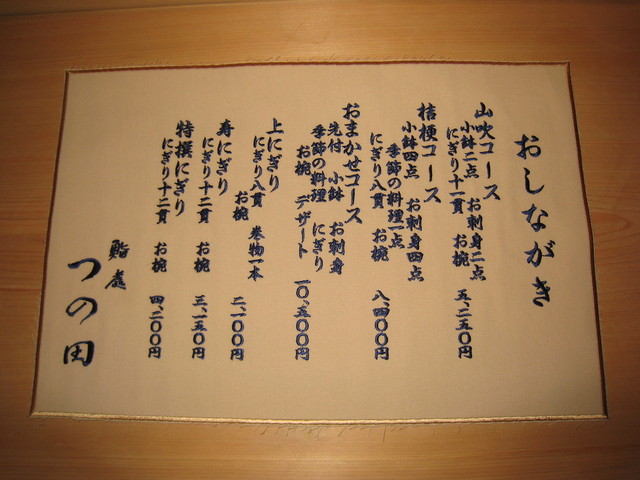 おしながき
山吹コース
小鉢二点　お刺身二点
にぎり十一貫　お椀　五、二五〇円
桔梗コース
小鉢四点　お刺身四点
季節の料理一点
にぎり八貫　お椀　八、四〇〇円
おまかせコース
先付　小鉢　お刺身
季節の料理　にぎり
お椀　デザート　一〇、五〇〇円
上にぎり
にぎり八貫　巻物一本
お椀　二、一〇〇円
寿にぎり
にぎり十二貫　お椀　三、一五〇円
特撰にぎり
にぎり十二貫　お椀　四、二〇〇円
鮨處
つの田